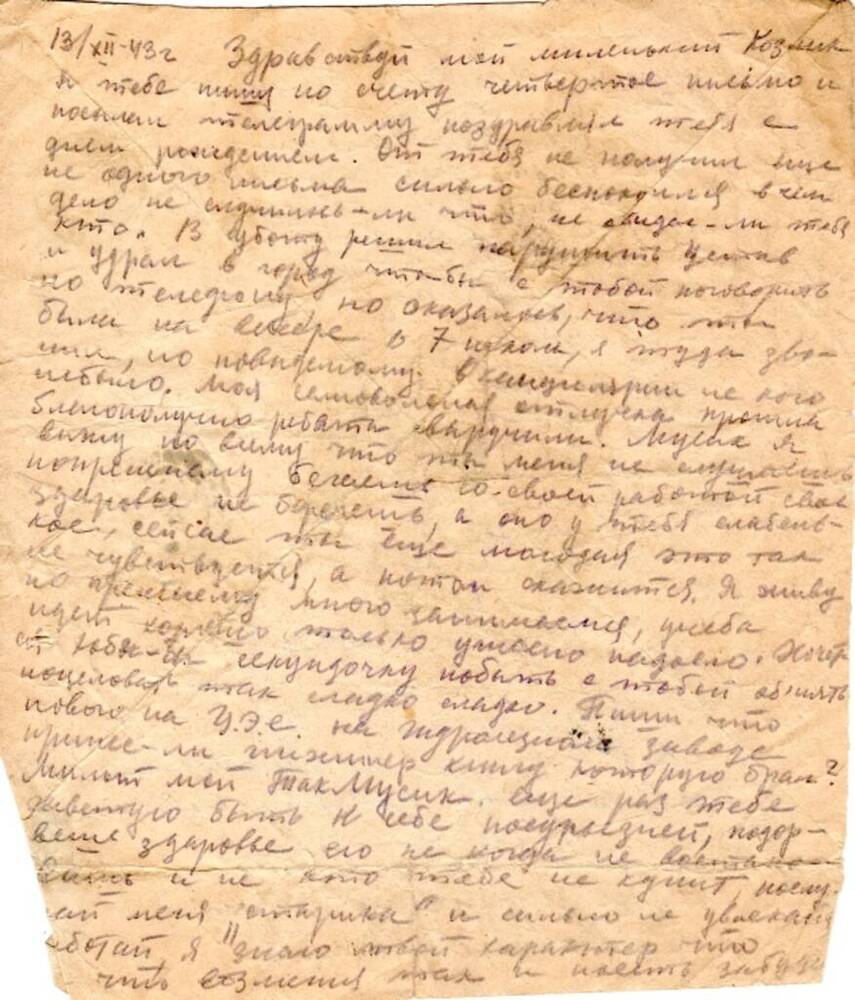 13/XII-43г Здравствуй мой миленький Козлик
Я тебе пишу по счету четвертое письмо и
послал телеграмму поздравлял тебя с
днем рождением. От тебя не получил еще
не одного письма сильно беспокоился в чем
дело не случилось-ли что, не обидел-ли тебя
кто. В субботу решил нарушить устав
и удрал в город чтобы с тобой поговорить
по телефону, но оказалось, что ты
была на вечере в 7 школе, я туда зво-
нил, но повидемому в канцелярии не кого
небыло. Моя самовольная отлучка прошла
благополучно ребята выручили. Мусик я
вижу по всему что ты меня не слушаешь
попрежнему бегаешь со своей работой свое
здоровье не бережешь, а оно у тебя слабень-
кое, сейчас ты еще молодая это так
не чувствуется, а потом скажится. Я живу
по прежнему много занимаемся, учеба
идет хорошо только ужасно надоело. Хочет
ся хотя-бы секундочку побыть с тобой обнять
поцеловать так сладко сладко. Пиши что
нового на Ц.Э.С. на заводе
принес-ли инженер книгу которую брал?
Милый мой Мусик. еще раз тебе
советую быть к себе посурьезней, подор-
вешь здоровье его не когда не восстано-
вишь и не кто тебе не купит, послу-
шай меня "старика" и сильно не увлекай
работай, я знаю твой характер что
чуть взялся так и поесть забуде